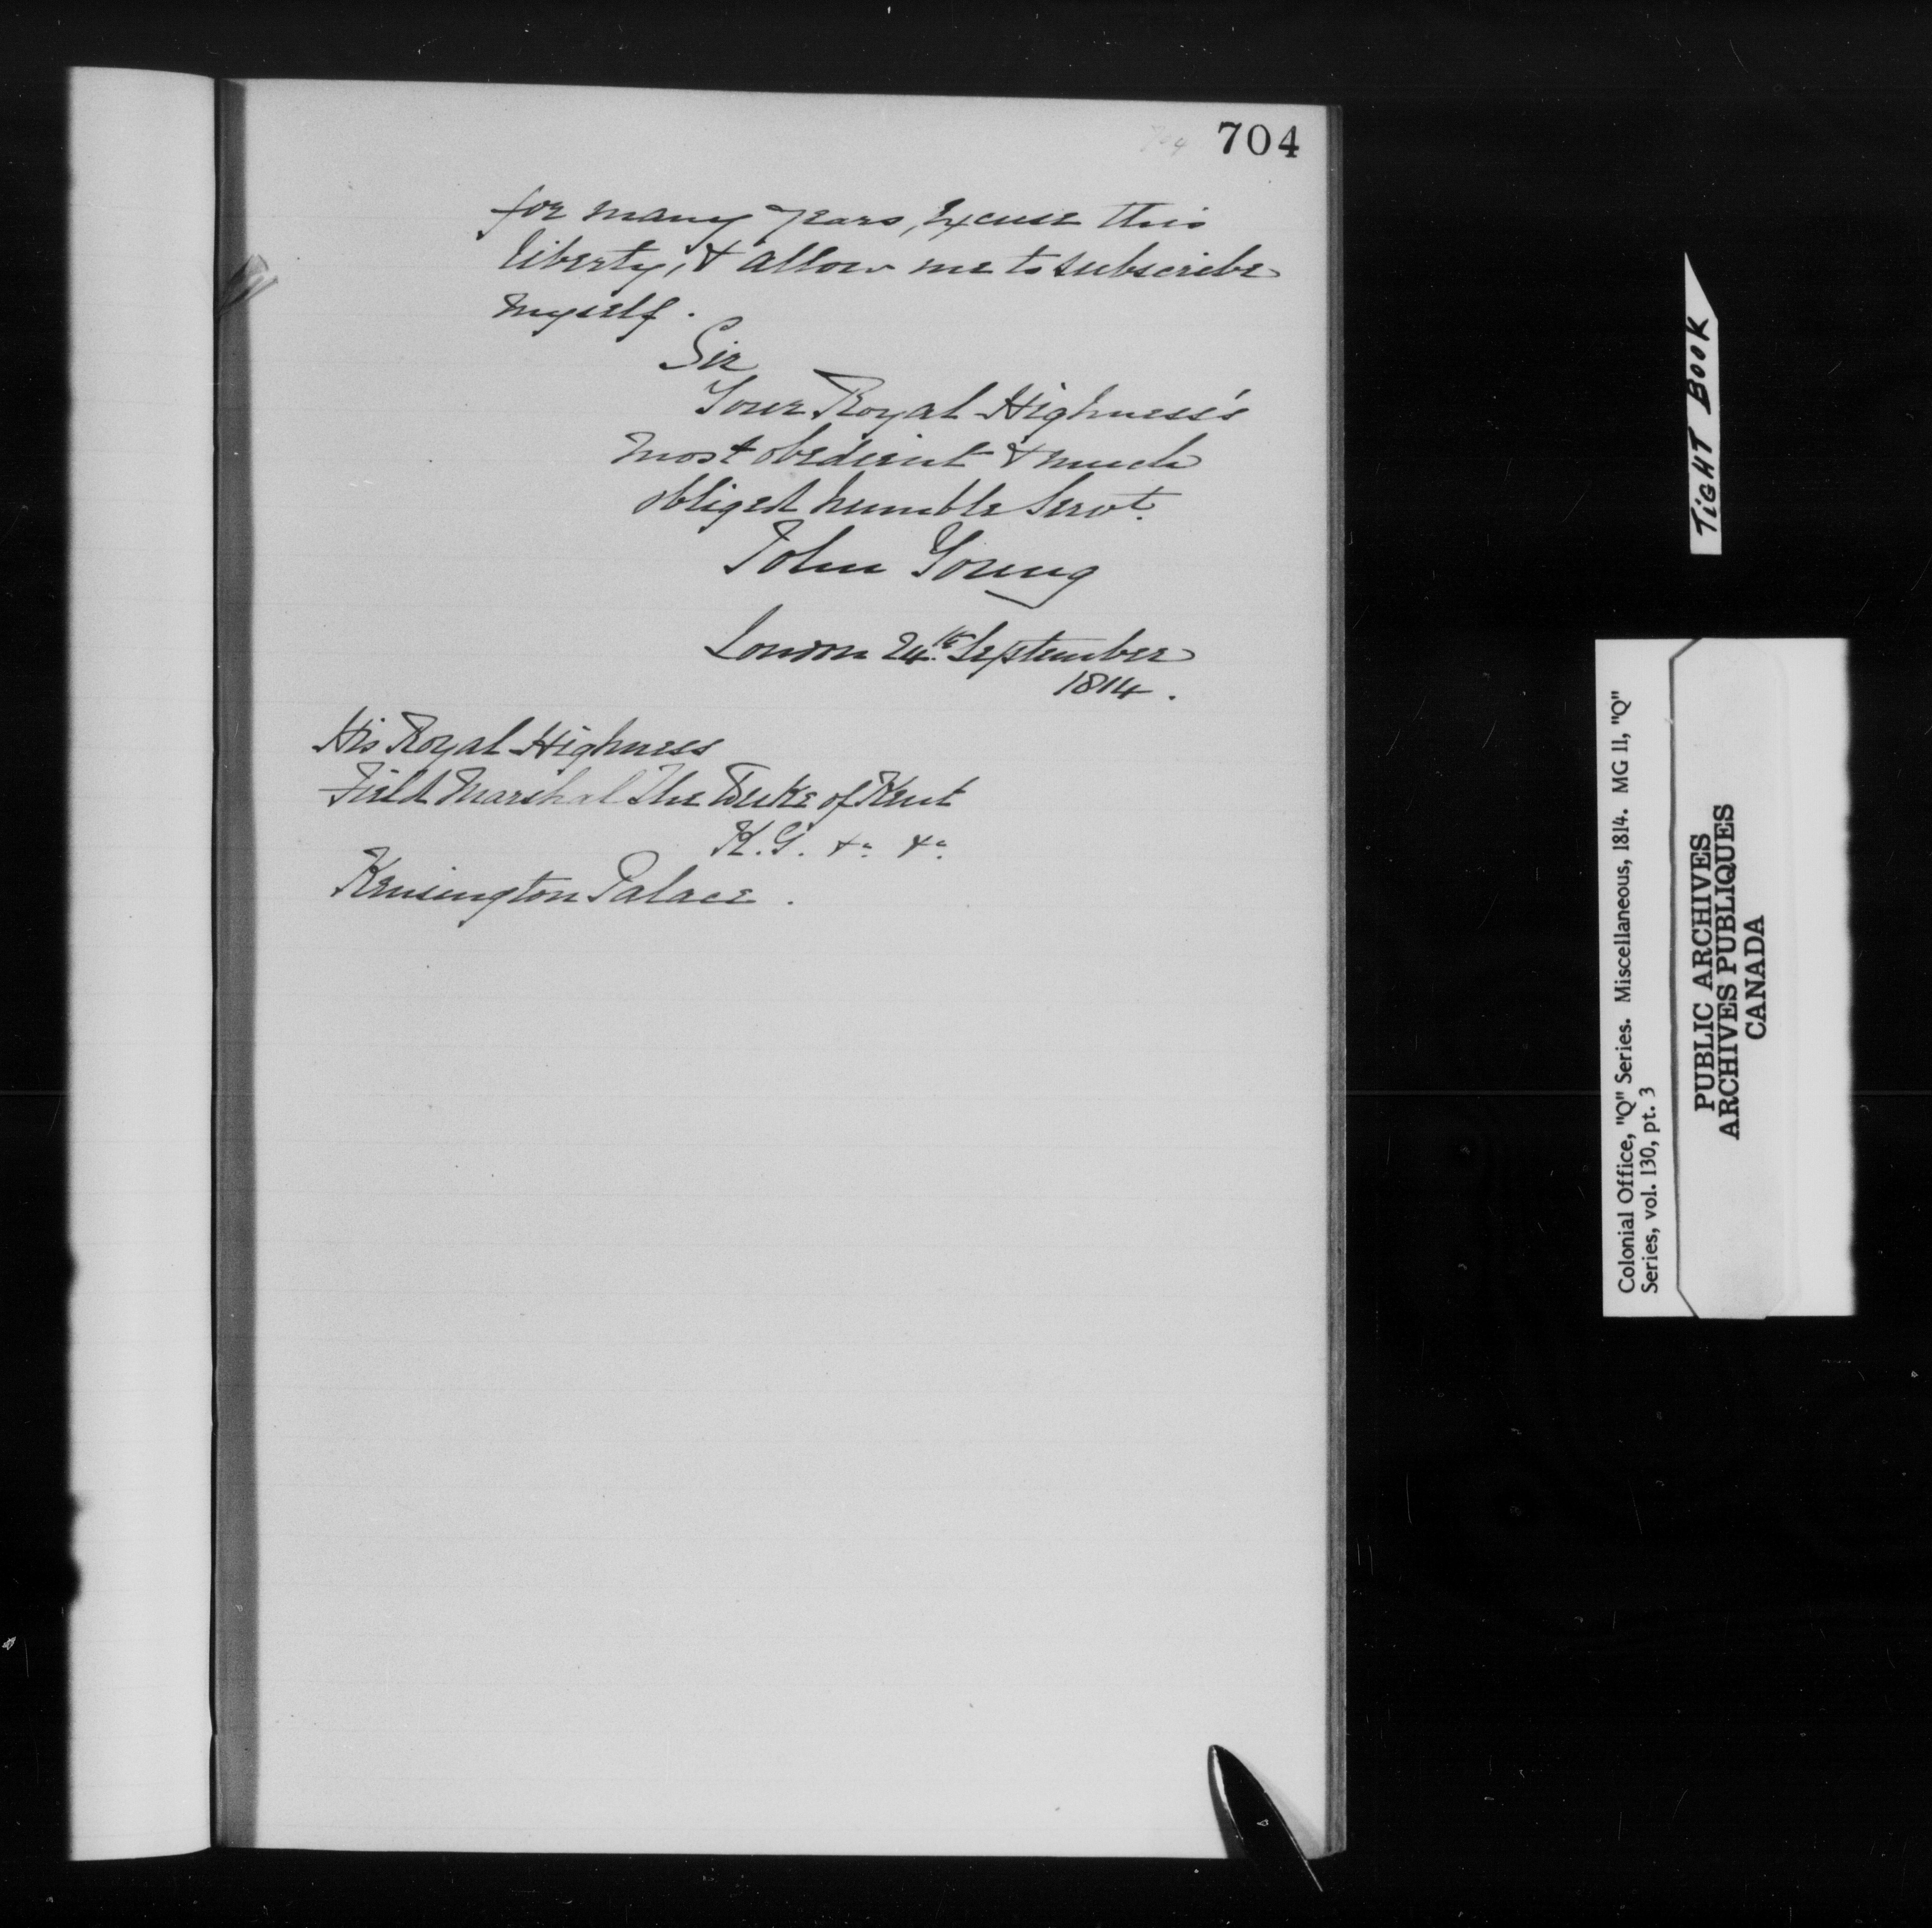 704 704
for many years, Excuse this
liberty, & allow me to subscribe
myself.
Sir
Your Royal Highness's
most obedient & much
obliged humble Servt.
John Young
London 24th September
1814.
His Royal Highness
Field Marshal The Duke of Kent
K.G. &c &c
Kensington Palace.
TIGHT BOOK
Colonial Office, "Q" Series. Miscellaneous, 1814. MG 11, "Q"
Series, vol. 130, pt. 3
PUBLIC ARCHIVES
ARCHIVES PUBLIQUES
CANADA